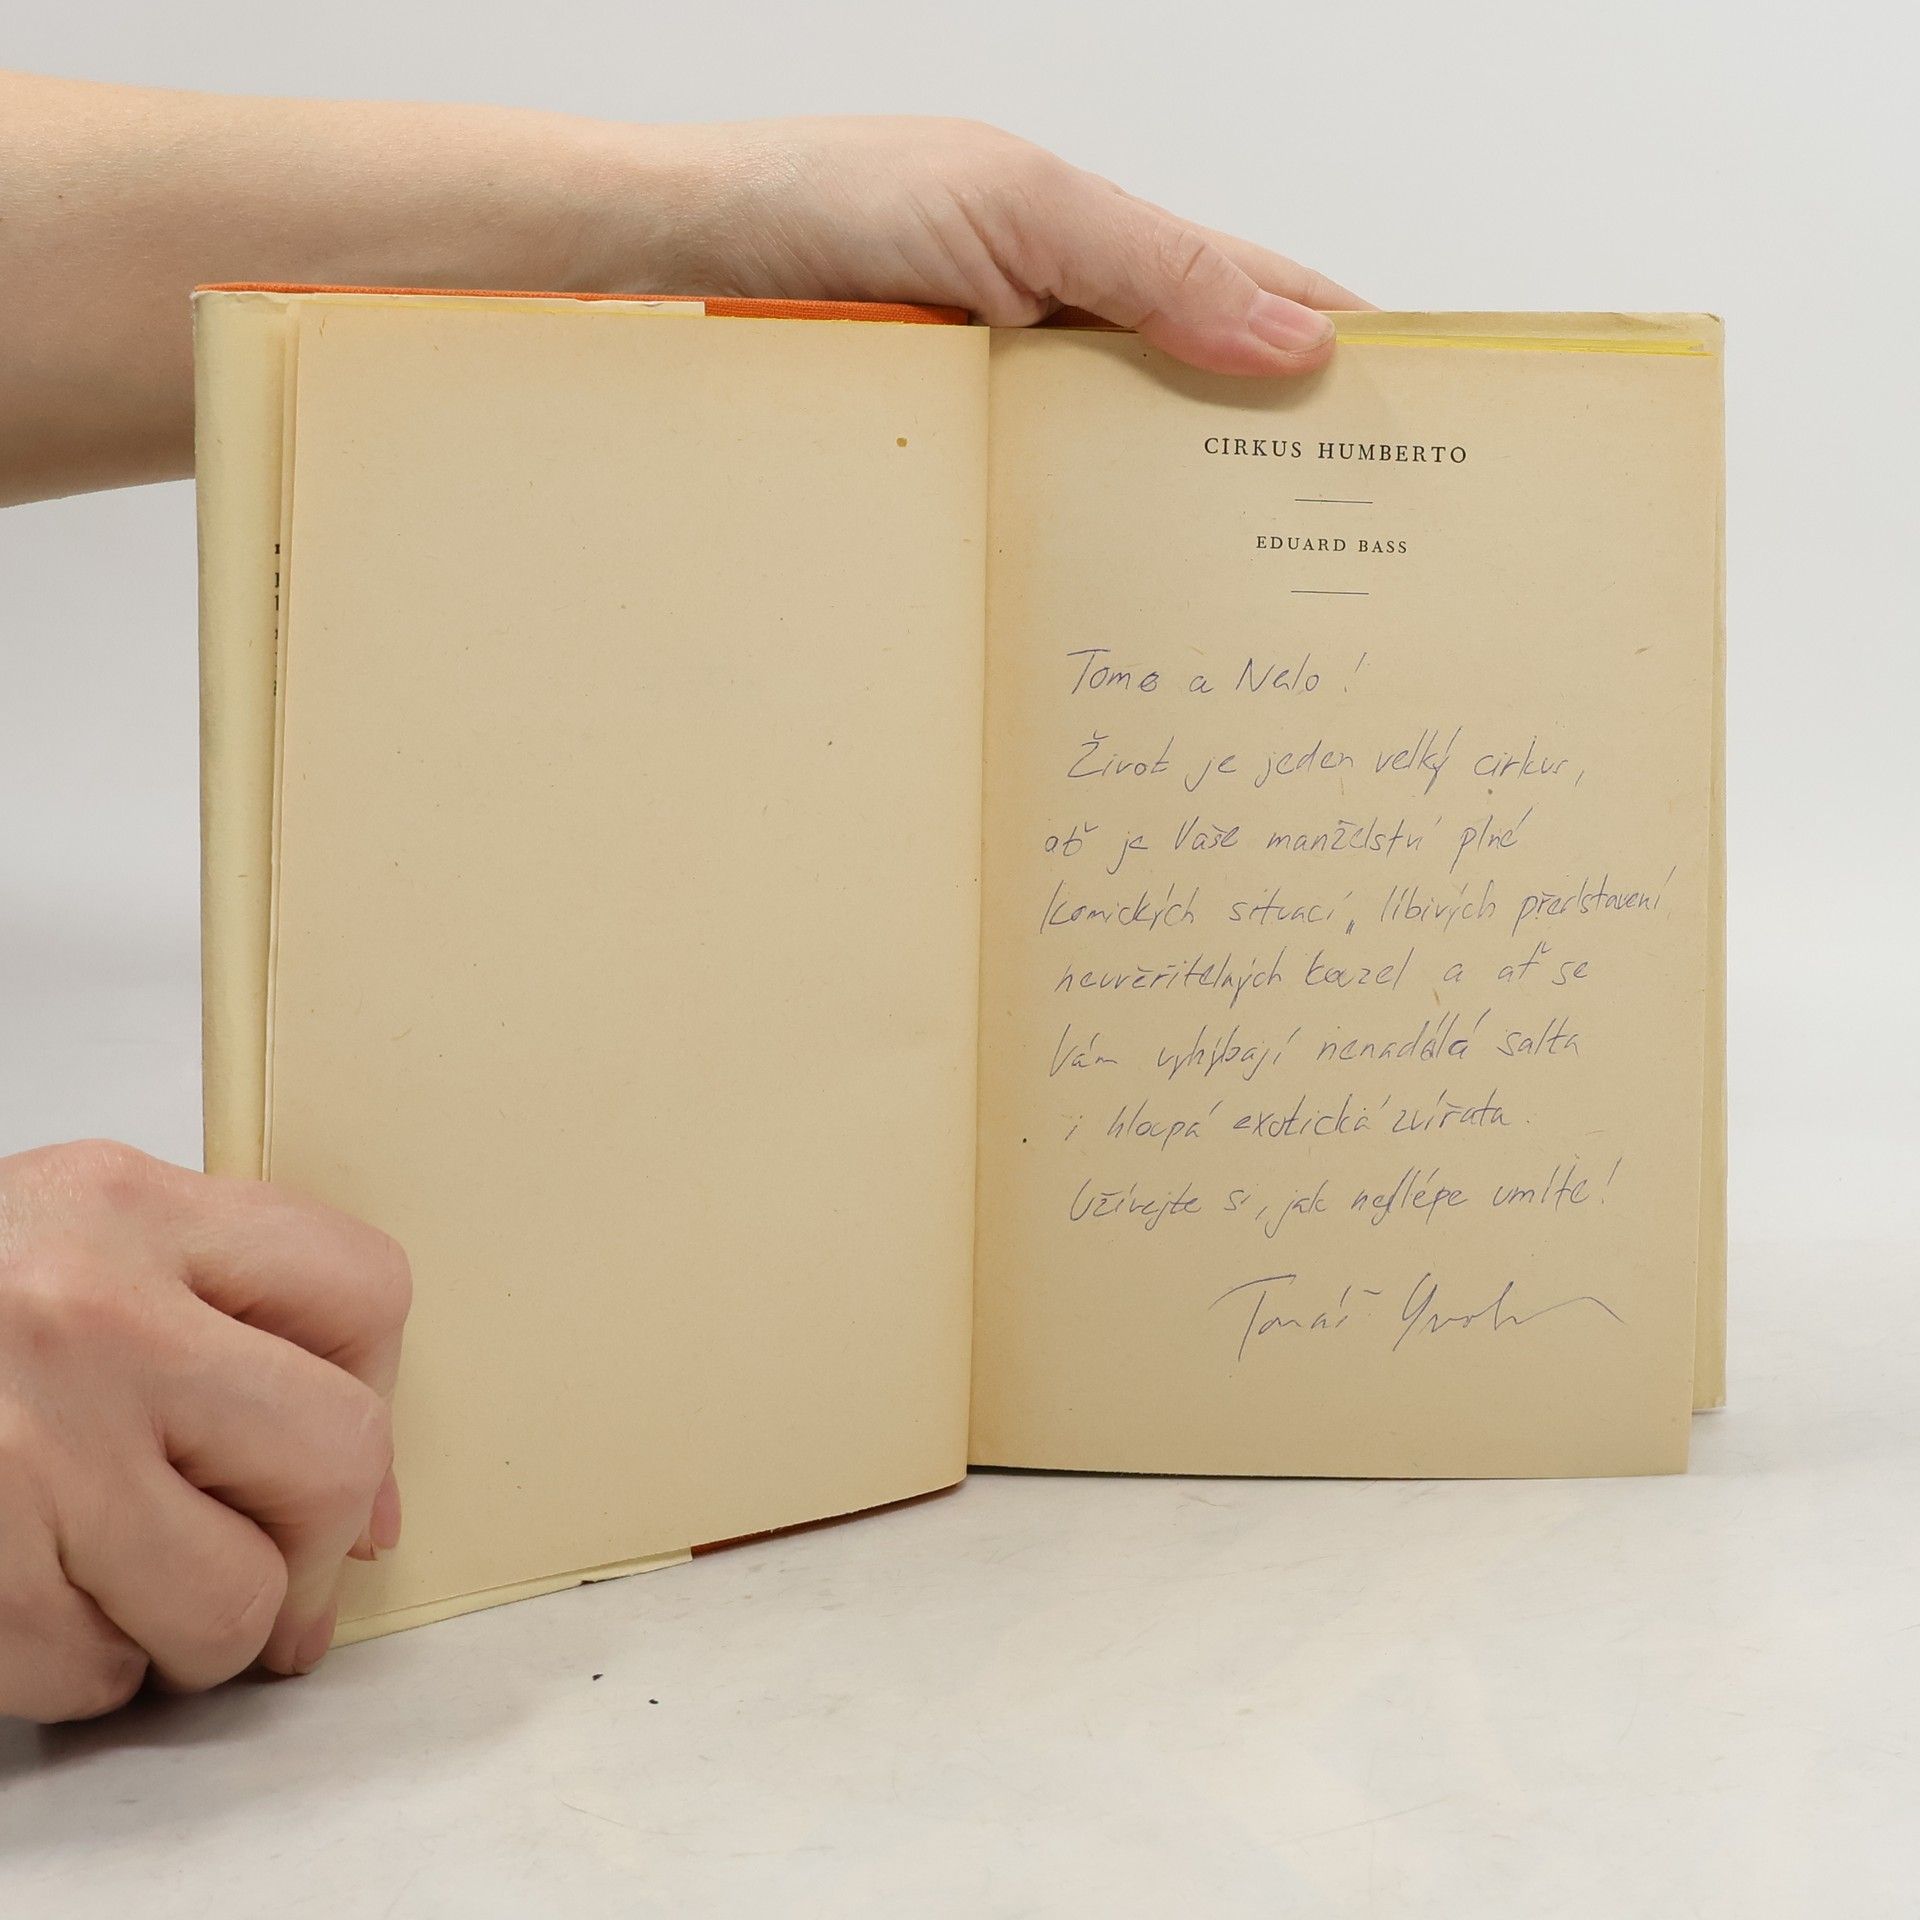 CIRKUS HUMBERTO
EDUARD BASS
Tome a Nelo!
Život je jeden velký cirkus,
ať je Vaše manželství plné
komických situací, líbivých představení
neuvěřitelných kouzel a ať se
Vám vyhýbají nenadálá salta
i hloupá exotická zvířata.
Užívejte si, jak nejlépe umíte!
Tomáš